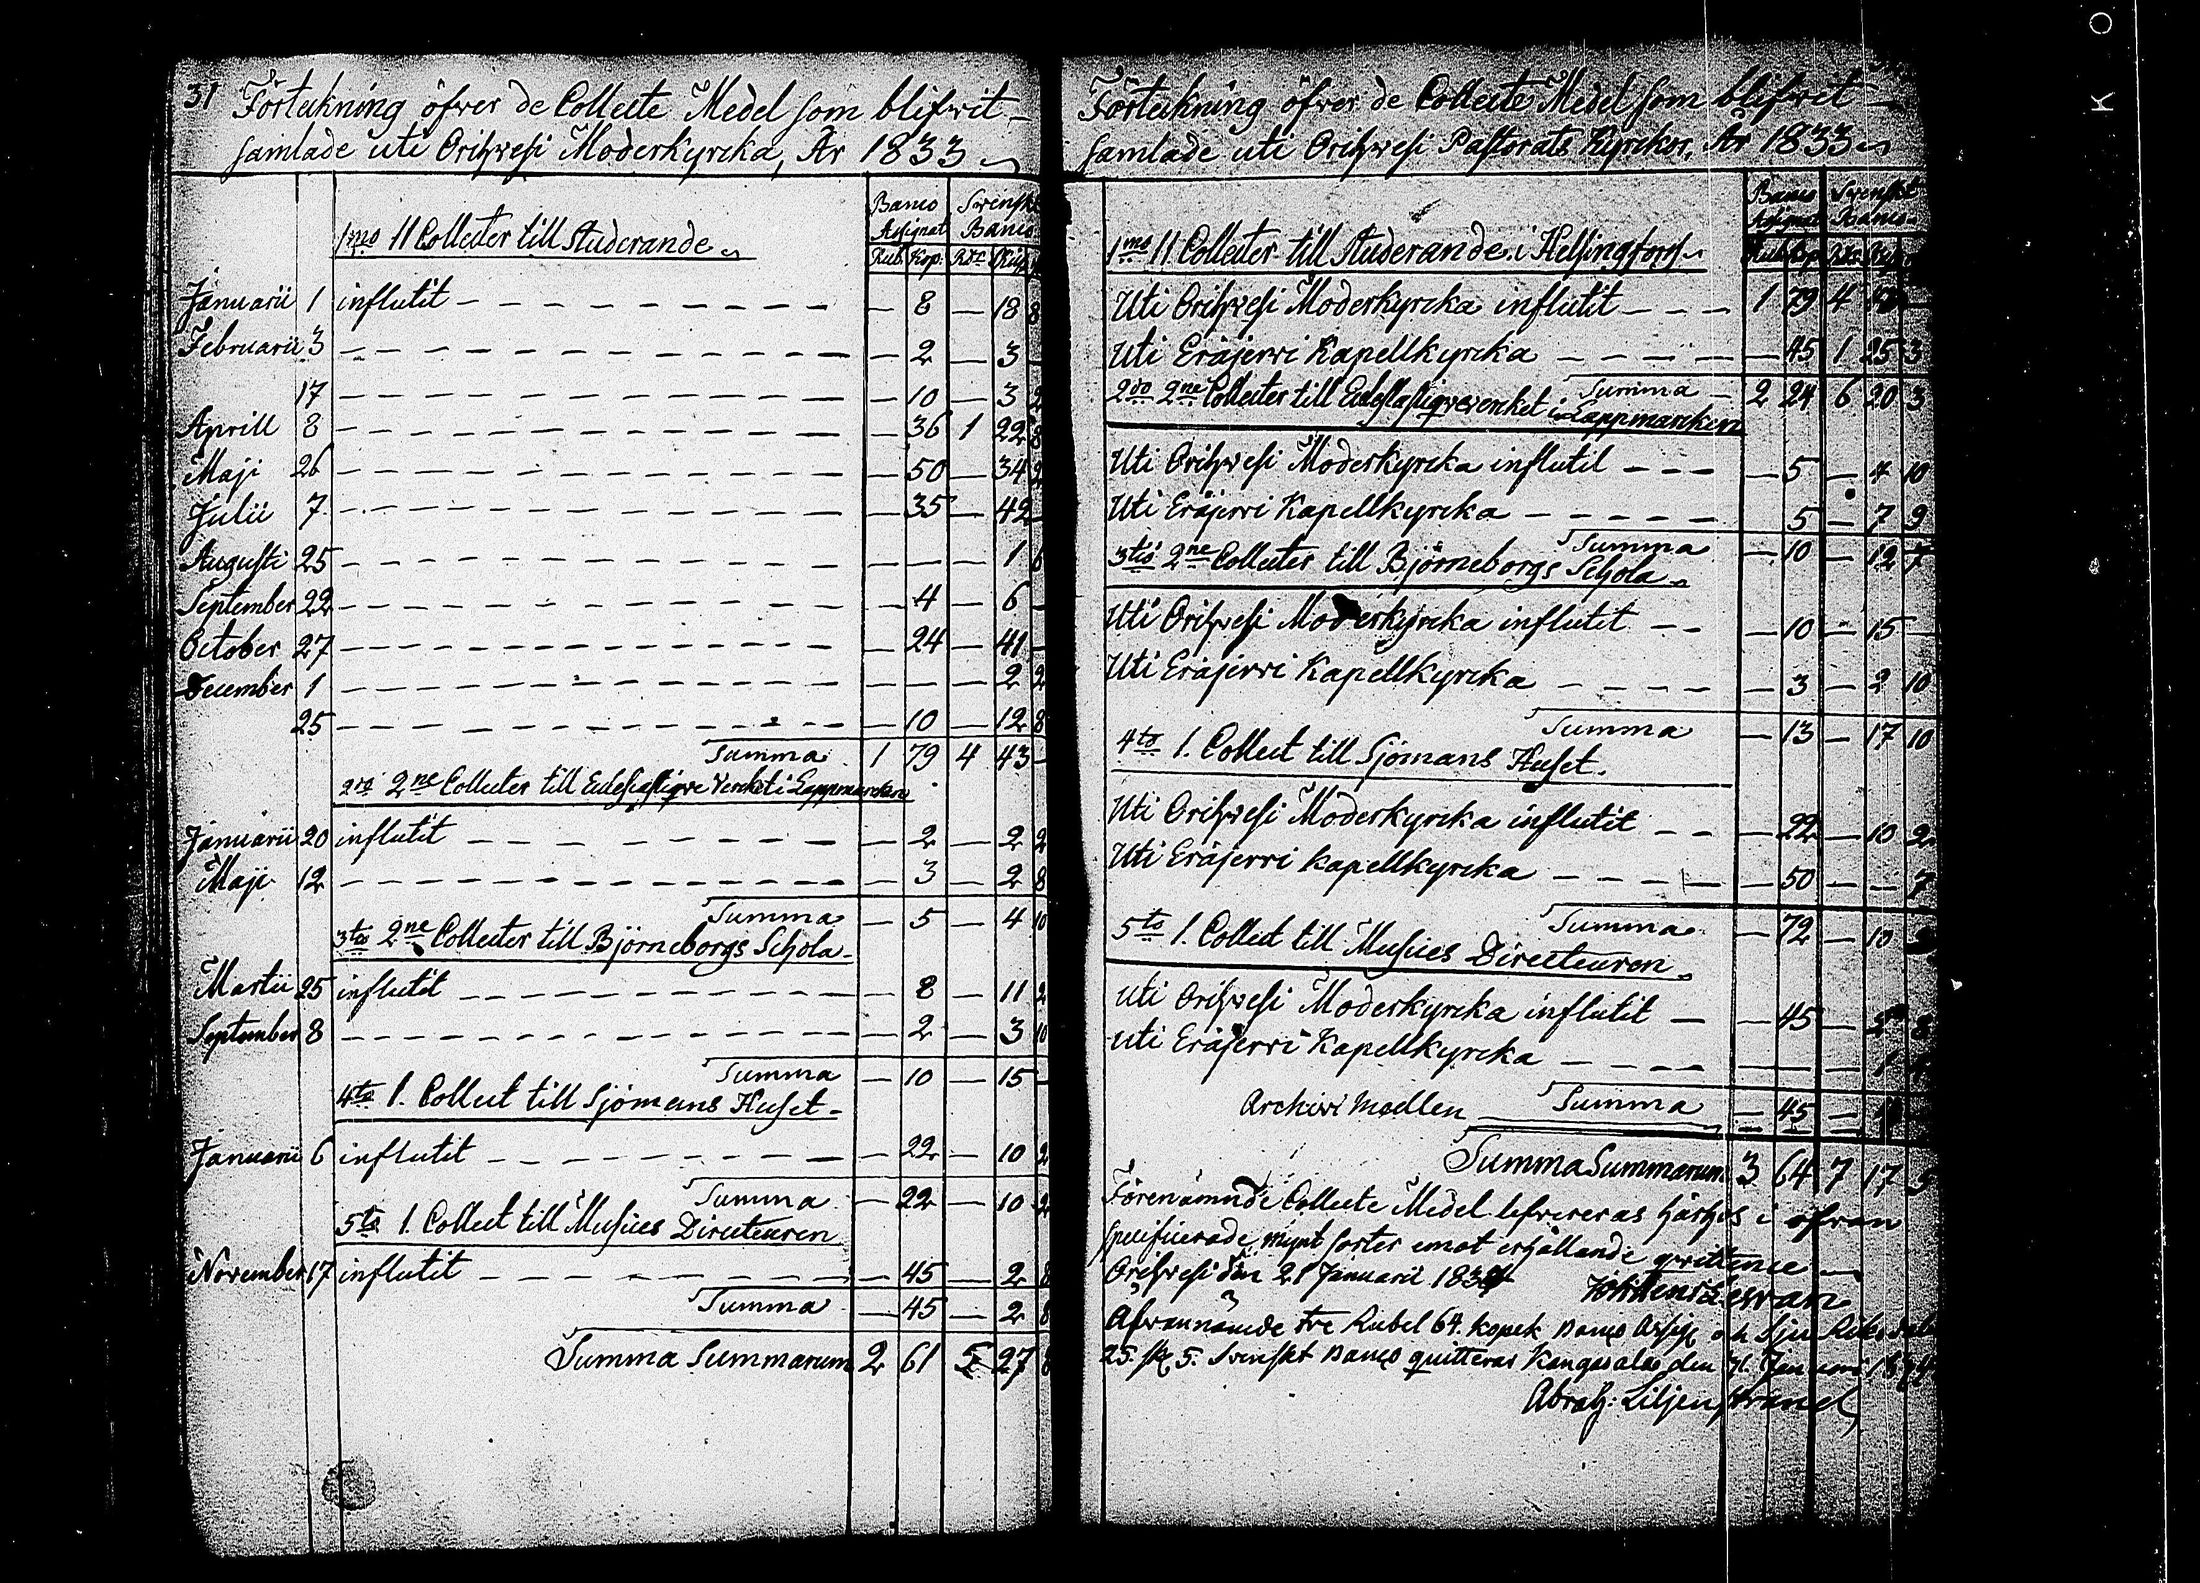 31 Förtekning öfver de Collecte Medel som blifwit
samlade uti Orihwesi Moderkyrcka, År 1833
Banco Assignat Svenskt Banco
1mo 11 Collecter till Studerande
Rub. Kop: Rdr
Januarii 1 influtit — 8 — 18 8
Februarii 3 — 2 — 3 —
17 — 10 — 3 2
Aprill 8 — 36 1 22 8
Maji 26 — 50 — 34 2
Julii 7 — 35 — 42 —
Augusti 25 — — — 1 6
September 22 — 4 — 6 —
October 27 — 24 — 41 —
December 1 — — — 2 2
25 — 10 — 12 8
Summa 1 79 4 43 —
2do 2ne Collecter till Ecclesiastique Vercket i Lappmarcken
Januarii 20 influtit — 2 — 2 2
Maji 12 — 3 — 2 8
Summa — 5 — 4 10
3tio 2ne Collecter till Björneborgs Schola
Martii 25 influtit — 8 — 11 2
September 8 — 2 — 3 10
Summa — 10 — 15 —
4to 1. Collect till Sjömans Huset
Januarii 6 influtit — 22 — 10 2
Summa — 22 — 10 2
5to 1. Collect till Musices Directeuren
November 17 influtit — 45 — 2 8
Summa — 45 — 2 8
Summa Summarum 2 61 5 27 8
Förtekning öfver de Collecte Medel som blifwit
samlade uti Orihwesi Pastorats Kyrckor, År 1833
Banco Assignat Svenskt Banco
1mo 11 Collecter till Studerande i Helsingfors
Uti Orihwesi Moderkyrcka influtit 1 79 4
Uti Eräjerwi Kapellkyrcka — 45 1 25 3
Summa 2 24 6 20 3
2do 2ne Collecter till Ecclesiastiqvevercket i Lappmarcken
Uti Orihwesi Moderkyrcka influtit — 5 — 4 10
Uti Eräjerwi Kapellkyrcka 5 — 7 9
Summa — 10 — 12 7
3tio 2ne Collecter till Björneborgs Schola
Uti Orihwesi Moderkyrcka influtit — 10 — 15 —
Uti Eräjerwi Kapellkyrcka — 3 — 2 10
Summa — 13 — 17 10
4to 1. Collect till Sjömans Huset.
Uti Orihwesi Moderkyrcka influtit — 22 — 10 2
Uti Eräjerwi Kapellkyrcka — 50 — — 7
Summa — 72 — 10 9
5to 1. Collect till Musices Directeuren
Uti Orihwesi Moderkyrcka influtit — 45 — 2 8
Uti Eräjerwi Kapellkyrcka — — — 1
Summa — 45 —
Archivi Medlen
Summa Summarum 3 64 7 17 5
Förenämnde Collecte Medel lefvereras härhos i ofvan
specificerade mynt sorter emot erhållande qvittence
Orihvesi den 21 Januarii 1834
Ofvannämde tre Rubel 64. Kopek Banco Assig och Sju Riksdal
25. sk 5. Svenskt Banco quitteras Kangasala den 31. Januari 1834
Abrah: Liljenstrand
K O